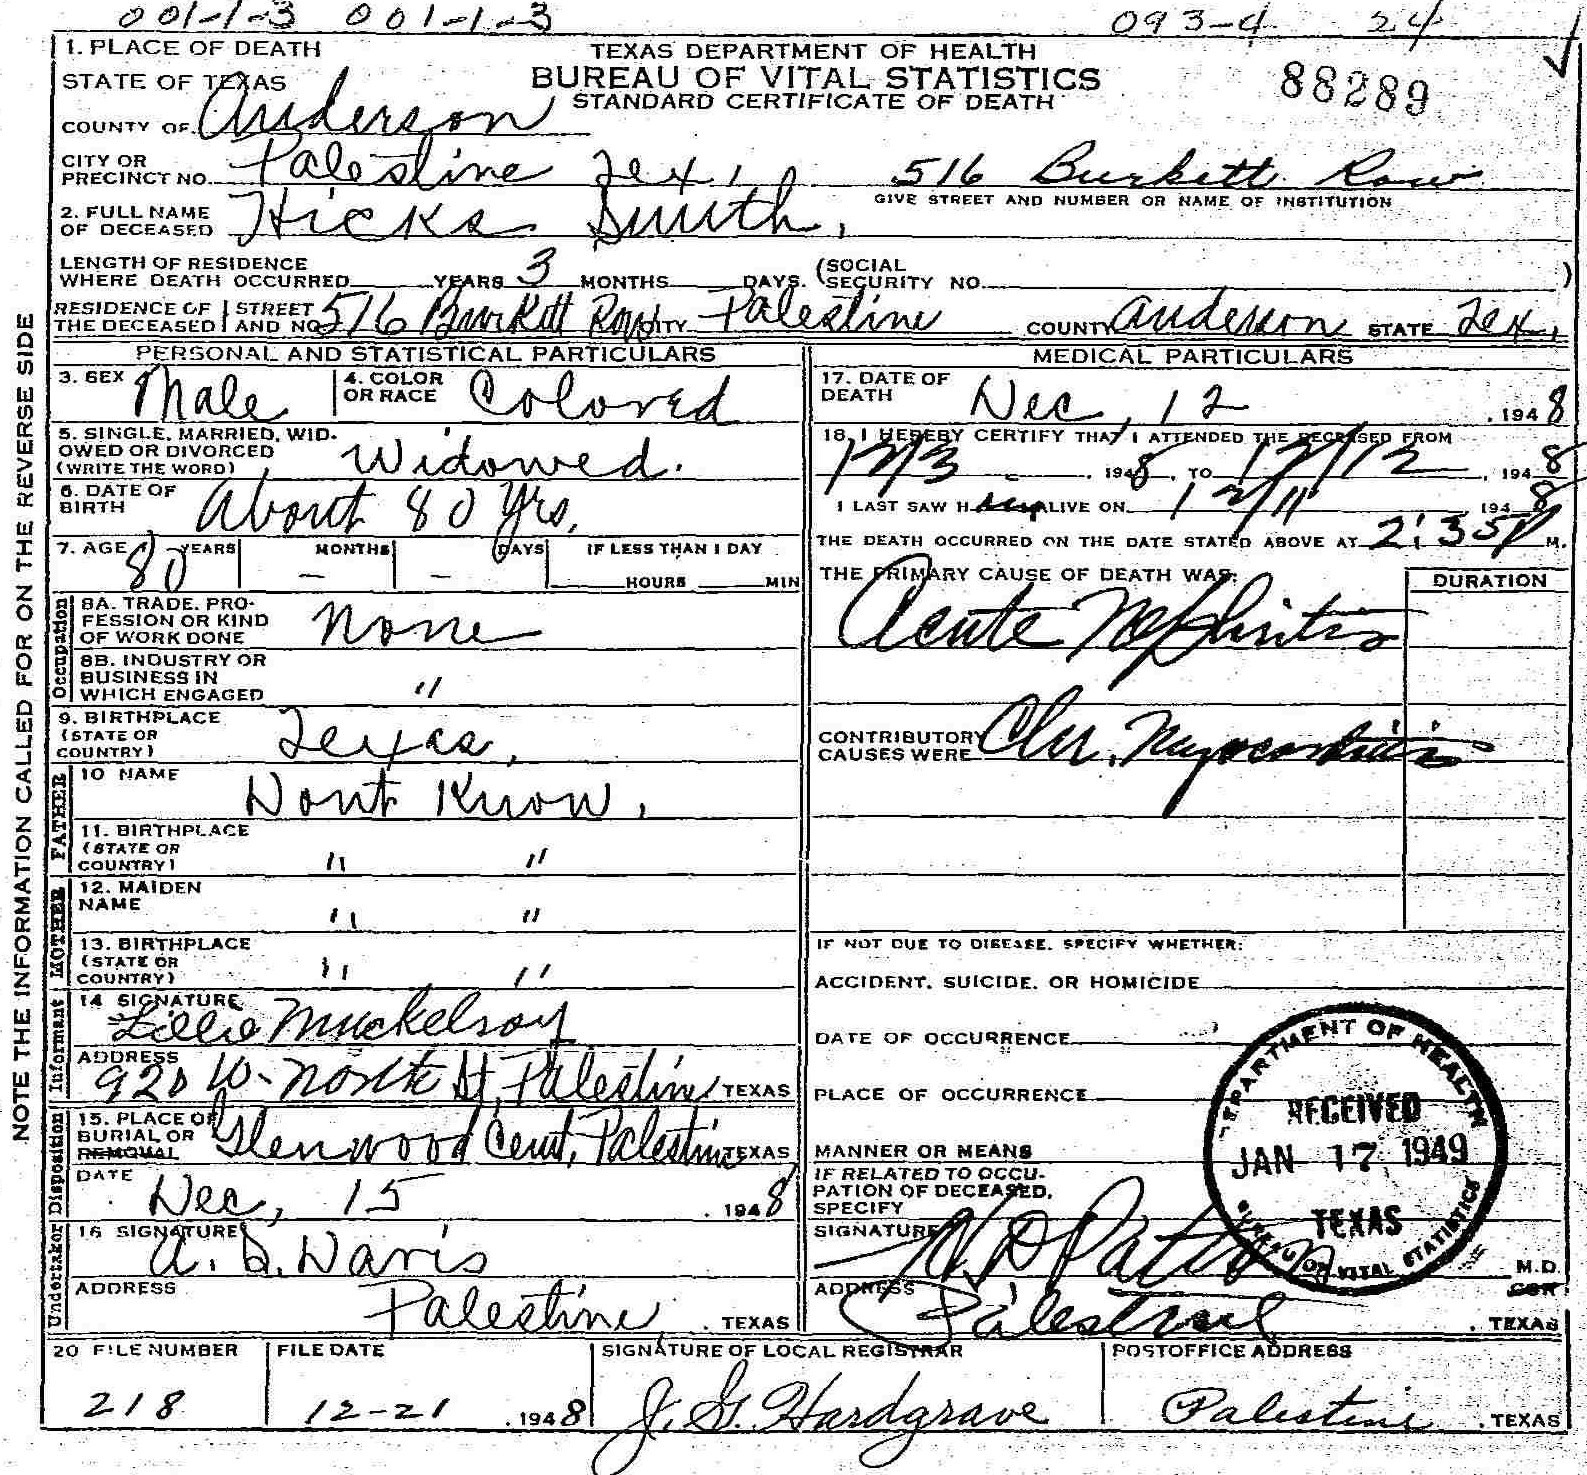 001-1-3 001-1-3 093-4 24
1. PLACE OF DEATH
STATE OF TEXAS
COUNTY OF Anderson
TEXAS DEPARTMENT OF HEALTH
BUREAU OF VITAL STATISTICS
STANDARD CERTIFICATE OF DEATH
88289
CITY OR PRECINCT NO. Palestine Tex, 516 Burkett Row
GIVE STREET AND NUMBER OR NAME OF INSTITUTION
2. FULL NAME OF DECEASED Hicks Smith,
LENGTH OF RESIDENCE WHERE DEATH OCCURRED YEARS 3 MONTHS DAYS. (SOCIAL SECURITY NO. )
RESIDENCE OF THE DECEASED STREET AND NO. 516 Burkett Row CITY Palestine COUNTY Anderson STATE Tex,
PERSONAL AND STATISTICAL PARTICULARS
3. SEX Male 4. COLOR OR RACE Colored
5. SINGLE, MARRIED, WIDOWED OR DIVORCED (WRITE THE WORD) Widowed.
6. DATE OF BIRTH About 80 Yrs,
7. AGE 80 YEARS - MONTHS - DAYS IF LESS THAN 1 DAY HOURS MIN
Occupation
8A. TRADE, PROFESSION OR KIND OF WORK DONE None
8B. INDUSTRY OR BUSINESS IN WHICH ENGAGED "
9. BIRTHPLACE (STATE OR COUNTRY) Texas,
FATHER
10 NAME Dont Know,
11. BIRTHPLACE (STATE OR COUNTRY) " "
MOTHER
12. MAIDEN NAME " "
13. BIRTHPLACE (STATE OR COUNTRY) " "
Informant
14 SIGNATURE Lillie Muckelroy
ADDRESS 920 W- North St, Palestine TEXAS
Undertaker Disposition
15. PLACE OF BURIAL OR REMOVAL Glenwood Cemt, Palestine TEXAS
DATE Dec, 15 .1948
16 SIGNATURE A. D. Davis
ADDRESS Palestine, . TEXAS
MEDICAL PARTICULARS
17. DATE OF DEATH Dec, 12 .1948
18. I HEREBY CERTIFY THAT I ATTENDED THE DECEASED FROM
12/3 . 1948, TO 12/12 , 1948
I LAST SAW H im ALIVE ON 12/11 , 1948
THE DEATH OCCURRED ON THE DATE STATED ABOVE AT 2:35 P M.
THE PRIMARY CAUSE OF DEATH WAS: DURATION
Acute Nephritis
CONTRIBUTORY CAUSES WERE Chr. Myocarditis
IF NOT DUE TO DISEASE, SPECIFY WHETHER:
ACCIDENT, SUICIDE, OR HOMICIDE
DATE OF OCCURRENCE
PLACE OF OCCURRENCE
MANNER OR MEANS
IF RELATED TO OCCUPATION OF DECEASED, SPECIFY
SIGNATURE H D Patton M.D.
ADDRESS Palestine . TEXAS
DEPARTMENT OF HEALTH
RECEIVED
JAN 17 1949
TEXAS
BUREAU OF VITAL STATISTICS
20 FILE NUMBER 218
FILE DATE 12-21 .1948
SIGNATURE OF LOCAL REGISTRAR J. G. Hardgrave
POSTOFFICE ADDRESS Palestine . TEXAS
NOTE THE INFORMATION CALLED FOR ON THE REVERSE SIDE